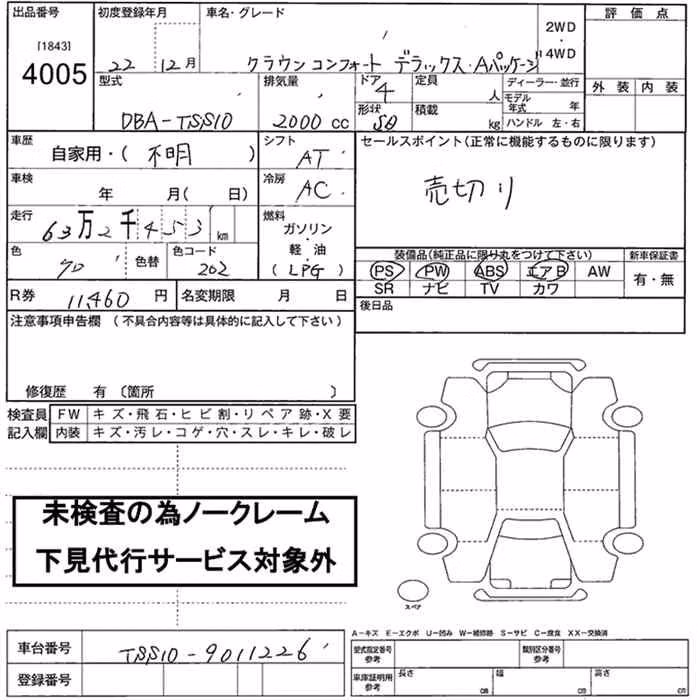 出品番号 初度登録年月 車名・グレード 2WD 評価点
[1843] ・
4005 22 12月 クラウンコンフォート デラックス・Aパッケージ 4WD
型式 排気量 ドア 4 定員 人 ディーラー・並行 外装 内装
モデル年式 年
DBA-TSS10 2000 cc 形状 SD 積載 kg ハンドル 左・右
車歴 自家用・( 不明 ) シフト AT セールスポイント(正常に機能するものに限ります)
車検 年 月( 日) 冷房 AC 売切り
走行 63万2千453 km 燃料 ガソリン・軽油 (LPG)
色 色替 色コード 202 装備品(純正品に限り丸をつけて下さい) 新車保証書
PS PW ABS エアB AW 有・無
SR ナビ TV カワ
R券 11460 円 名変期限 月 日 後日品
注意事項申告欄 (不具合内容等は具体的に記入して下さい)
修復歴 有 〔箇所 〕
検査員 FW キズ・飛石・ヒビ割・リペア跡・X要
記入欄 内装 キズ・汚レ・コゲ・穴・スレ・キレ・破レ
未検査の為ノークレーム
下見代行サービス対象外
スペア
A-キズ E-エクボ U-凹み W-補修跡 S-サビ C-腐食 XX-交換済
車台番号 TSS10-9011226 型式指定番号 参考 類別区分番号 参考
登録番号 車庫証明用 参考 長さ cm 幅 cm 高さ cm